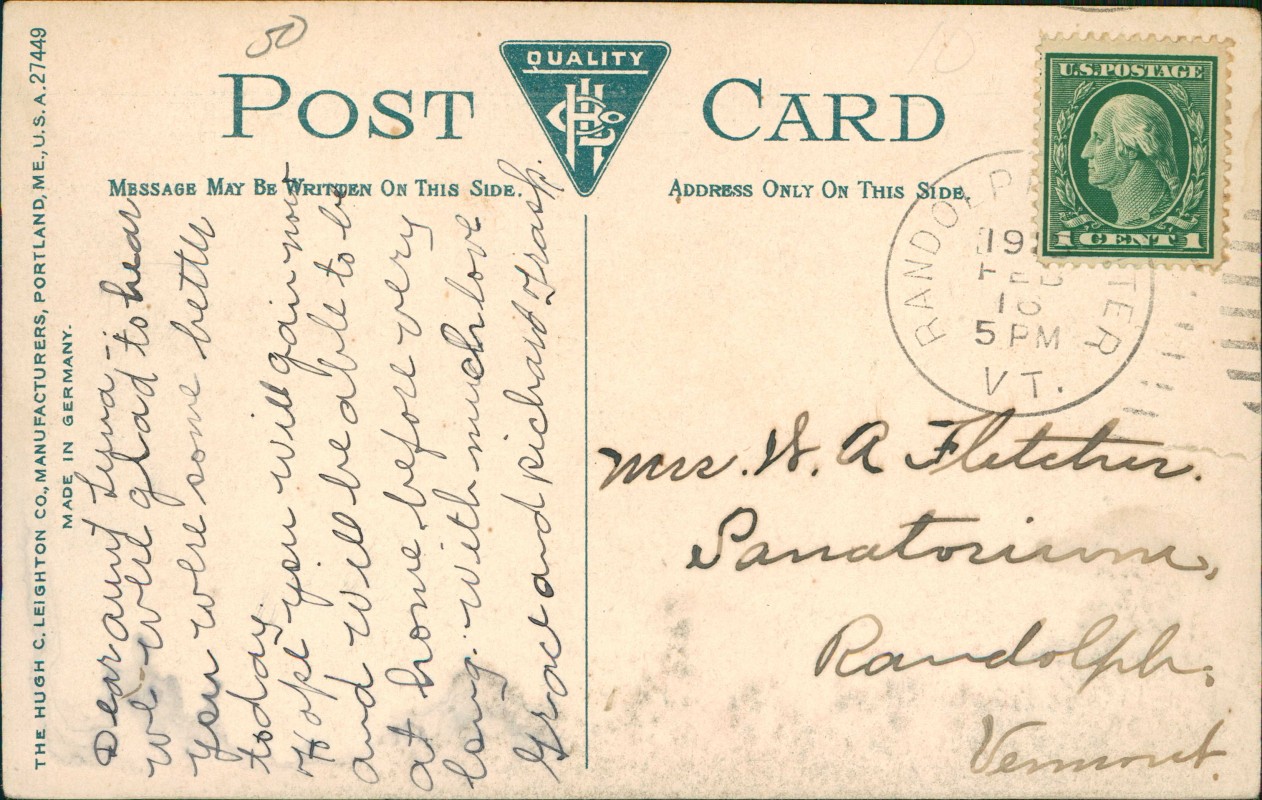 THE HUGH C. LEIGHTON CO., MANUFACTURERS, PORTLAND, ME., U.S.A. 27449
MADE IN GERMANY.
50
POST CARD
QUALITY
MESSAGE MAY BE WRITTEN ON THIS SIDE.
ADDRESS ONLY ON THIS SIDE.
U.S. POSTAGE
1 CENT 1
RANDOLP TER
19
FEB
5 PM
VT.
Dear aunt
we were glad to hear
you were some better
today.
Hope you will gain now
and will be able to be
at home before very
long. with much love
Grace and Richard Trask.
Mrs. W. A Fletcher.
Sanatorium,
Randolph.
Vermont.